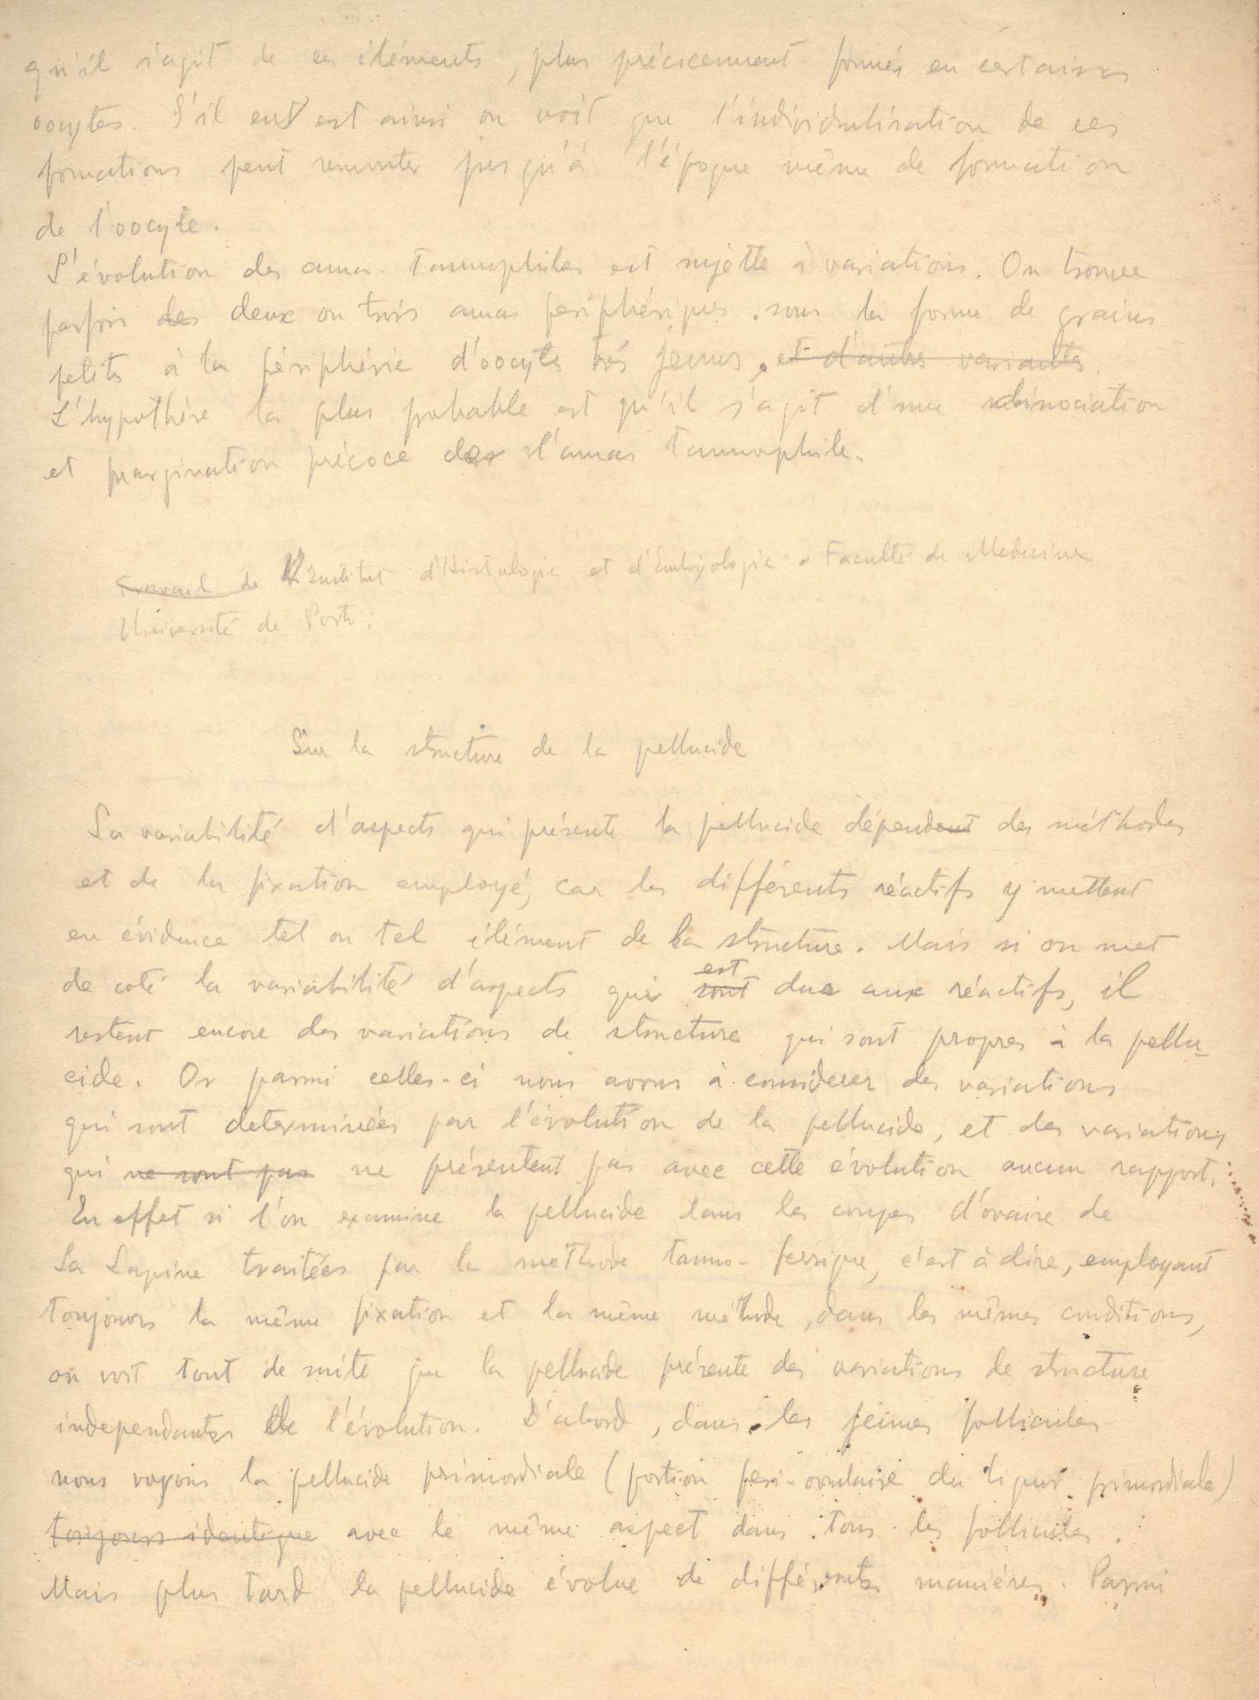 qu'il s'agit de ces éléments, plus précocement formés en certains
oocytes. S'il en est ainsi on voit que l'individualisation de ces
formations peut remonter jusqu'à l'époque même de formation
de l'oocyte.
L'évolution des amas tannophiles est sujette à variations. On trouve
parfois des deux ou trois amas périphériques sous la forme de grains
petits à la périphérie d'oocytes très jeunes, et d'autres variantes.
L'hypothèse la plus probable est qu'il s'agit d'une dissociation
et margination précoce des d'amas tannophile.
Travail de l'Institut d'Histologie et d'Embryologie - Faculté de Médecine
Université de Porto.
Sur la structure de la pellucide
La variabilité d'aspects qui présente la pellucide dépendent des méthodes
et de la fixation employé, car les différents réactifs y mettent
en évidence tel ou tel élément de la structure. Mais si on met
de coté la variabilité d'aspects qui sont est due aux réactifs, il
restent encore des variations de structure qui sont propres à la pellu-
cide. Or parmi celles-ci nous avons à considerer des variations
qui sont determinées par l'évolution de la pellucide, et des variations
qui ne sont pas ne présentent pas avec cette évolution aucun rapport.
En effet si l'on examine la pellucide dans les coupes d'ovaire de
la Lapine traitées par la méthode tanno-ferrique, c'est à dire, employant
toujours la même fixation et la même méthode, dans les mêmes conditions,
on voit tout de suite que la pellucide présente des variations de structure
independantes de l'évolution. D'abord, dans les jeunes follicules
nous voyons la pellucide primordiale (portion peri-ovulaire du primordiale)
toujours identique avec le même aspect dans tous les follicules.
Mais plus tard la pellucide évolue de différentes manières. Parmi